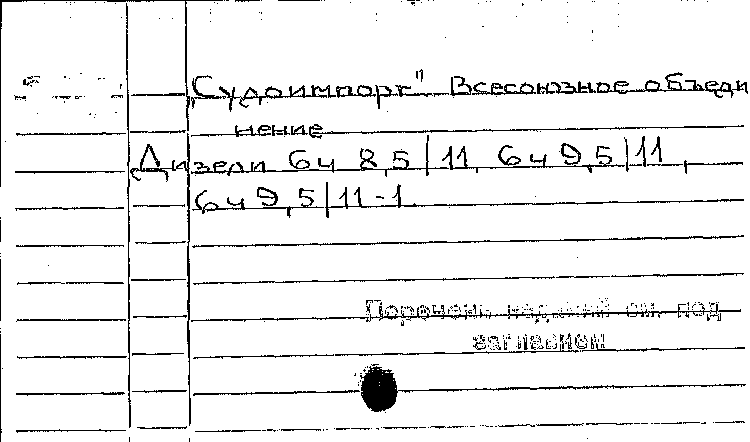 „Судоимпорт" Всесоюзное объеди
нение
Дизели 6ч 8,5/11, 6ч 9,5/11,
6ч 9,5/11-1.
Перечень изданий см. под
заглавием